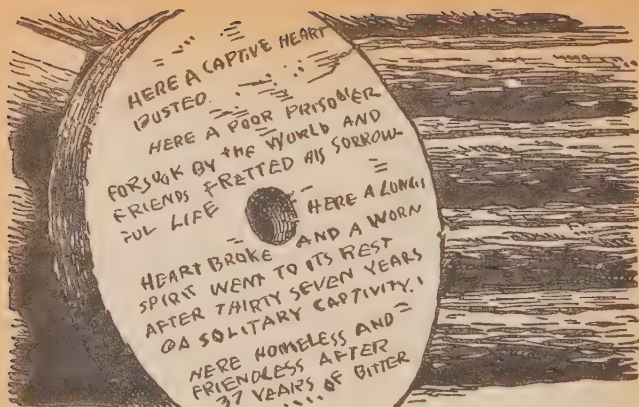 HERE A CAPTIVE HEART
BUSTED.
HERE A POOR PRISONER
FORSOOK BY the WORLD AND
FRIENDS FRETTED HIS SORROW-
FUL LIFE
HERE A
HEART BROKE AND A WORN
SPIRIT WENT TO ITS REST
AFTER THIRTY SEVEN YEARS
OF SOLITARY CAPTIVITY.
HERE HOMELESS AND
FRIENDLESS AFTER
37 YEARS OF BITTER